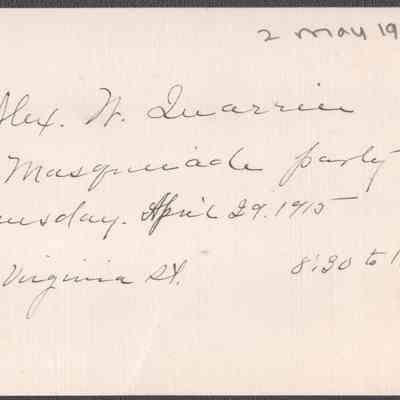 2 May 19
Alex. W. Quarrier
Masqueade party
ursday. April 29. 1915
Virginia St. 8:30 to 1